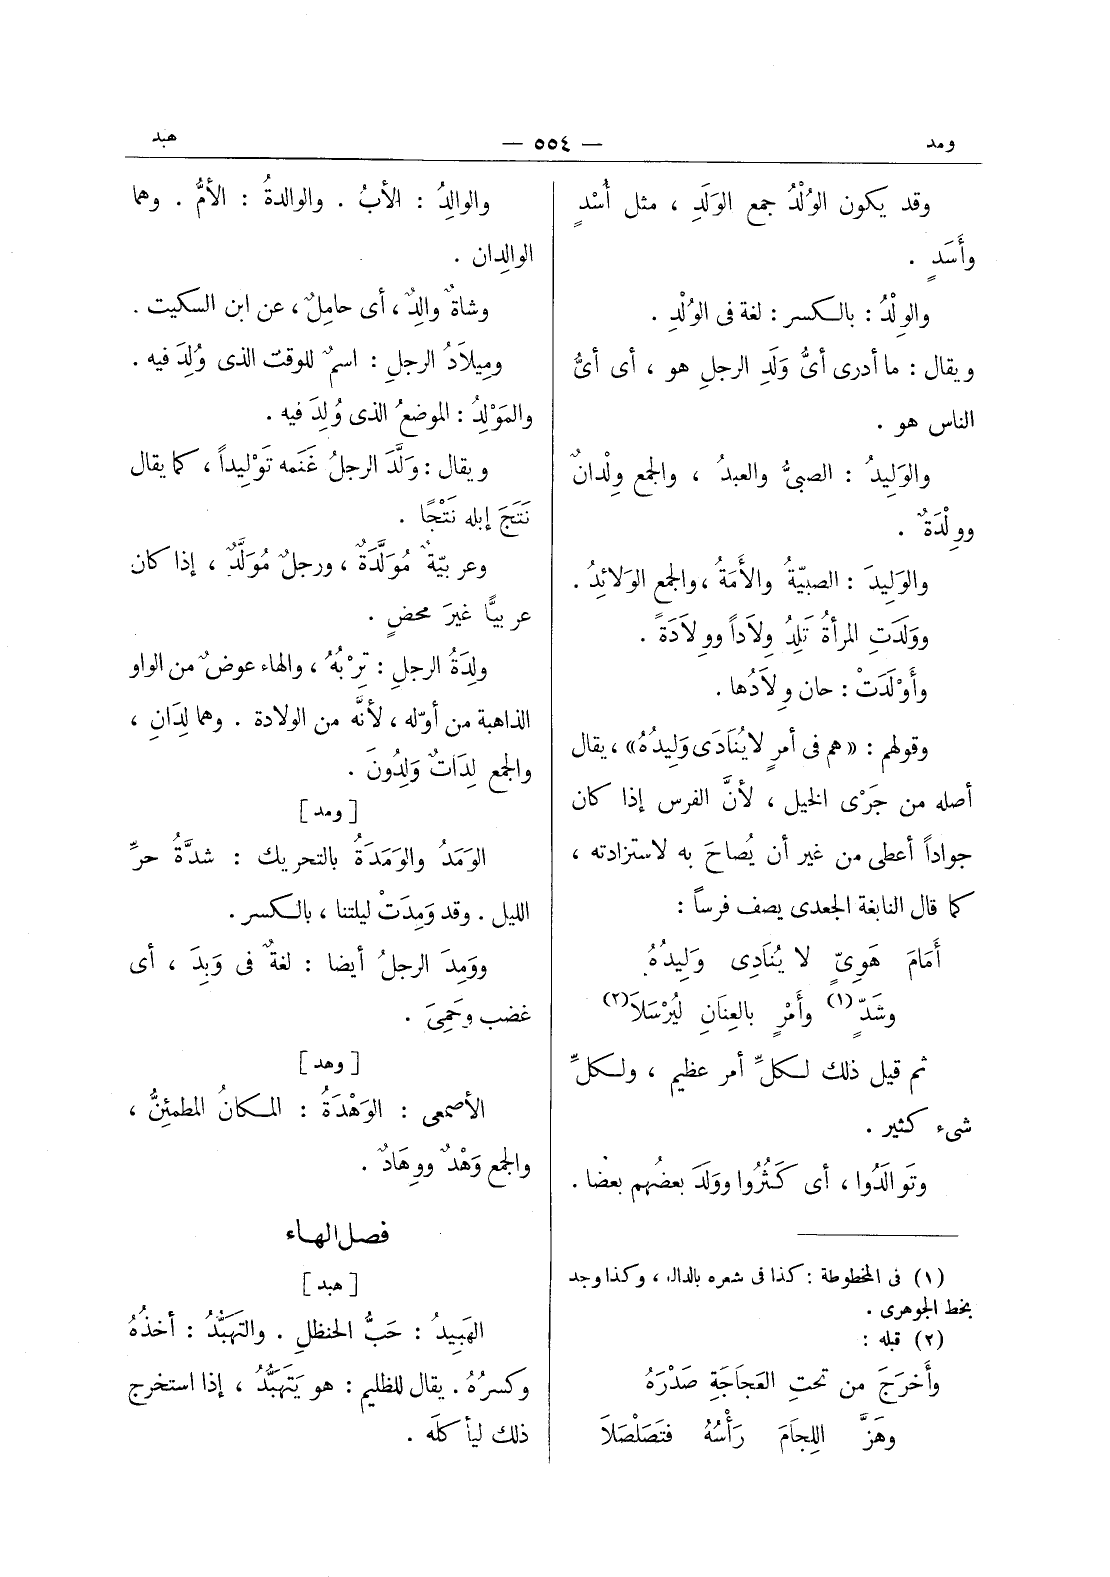 ومد
— ٥٥٤ —
هبد
وقد يكون الوُلْدُ جمع الوَلَدِ ، مثل أُسْدٍ
وأَسَدٍ .
والوِلْدُ : بالكسر : لغة فى الوُلْدِ .
ويقال : ما أدرى أىُّ وَلَدِ الرجلِ هو ، أى أىُّ
الناس هو .
والوَلِيدُ : الصبىُّ والعبدُ ، والجمع وِلْدانٌ
ووِلْدَةٌ .
والوَلِيدَ : الصبيّةُ والأَمَةُ ، والجمع الوَلائِدُ .
ووَلَدَتِ المرأةُ تَلِدُ وِلاَداً ووِلاَدَةً .
وأَوْلَدَتْ : حان وِلاَدُها .
وقولهم : «هم فى أمرٍ لايُنَادَى وَلِيدُهُ» ، يقال
أصله من جَرْى الخيل ، لأنَّ الفرس إذا كان
جواداً أعطى من غير أن يُصاحَ به لاستزادته ،
كما قال النابغة الجعدى يصف فرساً :
أَمَامَ هَوِىٍّ لا يُنَادِى وَلِيدُهُ
وشَدٍّ (١) وأَمْرٍ بالعِنَانِ لِيُرْسَلاَ (٢)
ثم قيل ذلك لكلِّ أمر عظيم ، ولكلِّ
شىء كثير .
وتَوالَدُوا ، أى كَثُرُوا ووَلَدَ بعضُهم بعضا .
(١) فى المخطوطة : كذا فى شعره بالدال ، وكذا وجد
بخط الجوهرى .
(٢) قبله :
وأَخرَجَ من تحتِ العَجَاجَةِ صَدْرَهُ
وهَزَّ اللِجَامَ رَأْسُهُ فتَصَلْصَلاَ
والوالِدُ : الأبُ . والوالدةُ : الأمُّ . وهما
الوالِدان .
وشاةٌ والِدٌ ، أى حامِلٌ ، عن ابن السكيت .
ومِيلاَدُ الرجلِ : اسمٌ للوقت الذى وُلِدَ فيه .
والمَوْلِدُ : الموضعُ الذى وُلِدَ فيه .
ويقال : وَلَّدَ الرجلُ غَنَمه تَوْلِيداً ، كما يقال
نَتَجَ إبله نَتْجًا .
وعربيّةٌ مُوَلَّدَةٌ ، ورجلٌ مُوَلَّدٌ ، إذا كان
عربيًّا غيرَ محضٍ .
ولِدَةُ الرجلِ : تِرْبُهُ ، والهاء عوضٌ من الواو
الذاهبة من أوّله ، لأنَّه من الولادة . وهما لِدَانِ ،
والجمع لِدَاتٌ وَلِدُونَ .
[ ومد ]
الوَمَدُ والوَمَدَةُ بالتحريك : شدَّةُ حرِّ
الليل . وقد وَمِدَتْ ليلتنا ، بالكسر .
ووَمِدَ الرجلُ أيضا : لغةٌ فى وَبِدَ ، أى
غضب وحَمِىَ .
[ وهد ]
الأصمعى : الوَهْدَةُ : المكانُ المطمئِنُّ ،
والجمع وَهْدٌ ووِهَادٌ .
فصل الهاء
[ هبد ]
الهَبِيدُ : حَبُّ الحنظلِ . والتَهَبُّدُ : أخذُهُ
وكسرُهُ . يقال للظليم : هو يَتَهَبَّدُ ، إذا استخرج
ذلك ليأكلَه .